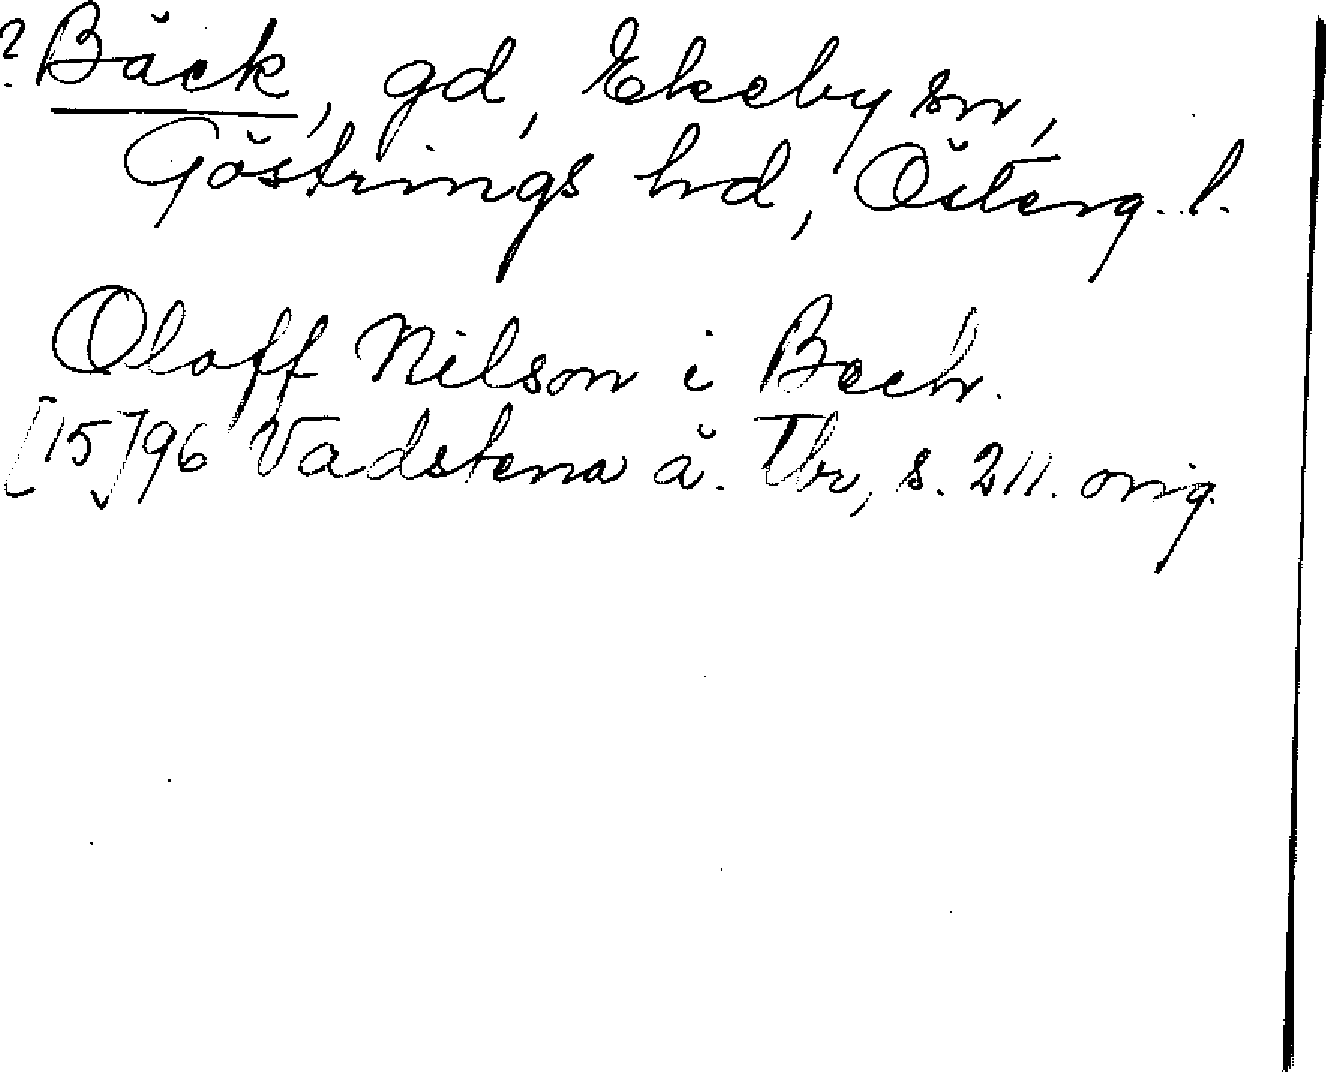 ? Bäck, gd, Ekeby sn,
Göstrings hd, Österg. l.
Oloff Nilson i Beck.
[15]96 Vadstena ä. Tbr, s. 211. orig.